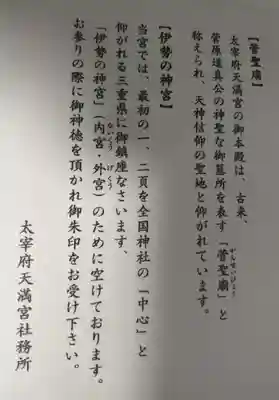 【菅聖廟】
太宰府天満宮の御本殿は、古来、
菅原道真公の神聖な御墓所を表す「菅聖廟」と
称えられ、天神信仰の聖地と仰がれています。
【伊勢の神宮】
当宮では、最初の一、二頁を全国神社の「中心」と
仰がれる三重県に御鎮座なさいます、
「伊勢の神宮」（内宮・外宮）のために空けております。
お参りの際に御神徳を頂かれ御朱印をお受け下さい。
太宰府天満宮社務所